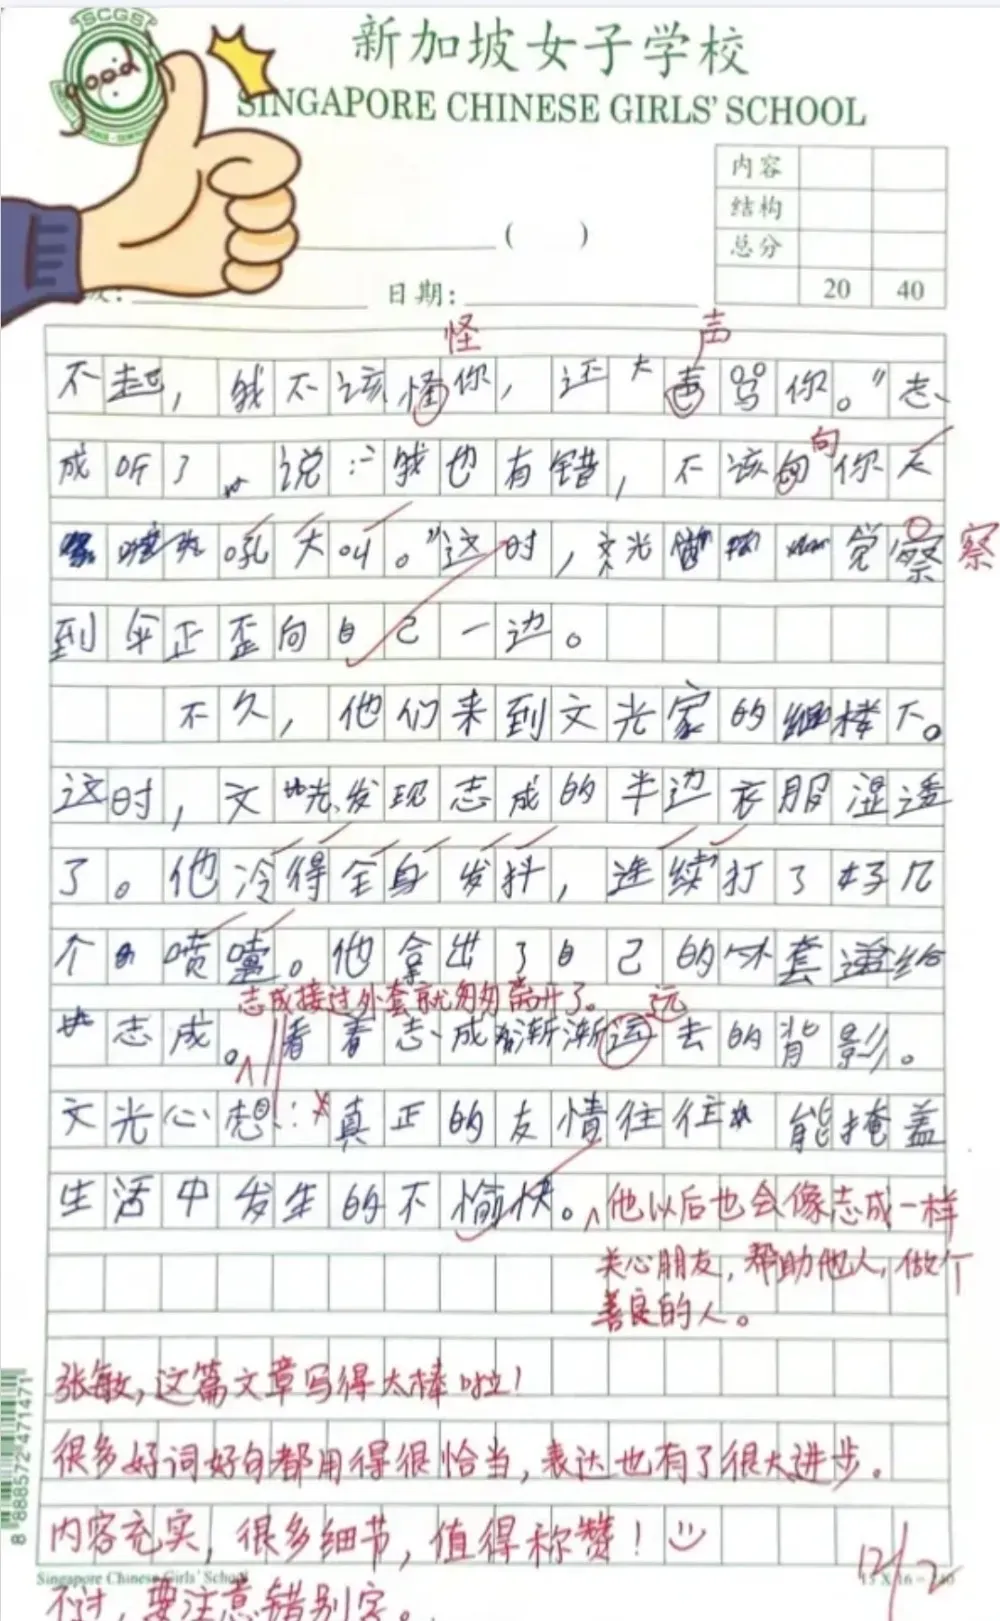 SCGS
good
新加坡女子学校
SINGAPORE CHINESE GIRLS' SCHOOL
内容
结构
( )
总分
日期:
20 40
怪 声
不起，我不该怪你，还大声骂你。”志
成听了，说：“我也有错，不该向你大
向
吼大叫。”这时，文光觉察
察
到伞正歪向自己一边。
不久，他们来到文光家的楼下。
这时，文光发现志成的半边衣服湿透
了。他冷得全身发抖，连续打了好几
个喷嚏。他拿出了自己的外套递给
志成接过外套就匆匆离开了。 远
志成。看着志成渐渐远去的背影。
文光心想：真正的友情往往能掩盖
生活中发生的不愉快。他以后也会像志成一样
关心朋友，帮助他人，做个
善良的人。
张敏，这篇文章写得太棒啦！
很多好词好句都用得很恰当，表达也有了很大进步。
内容充实，很多细节，值得称赞！
12/2
Singapore Chinese Girls' School
15 X 16 = 240
不过，要注意错别字。
8 888572 471471